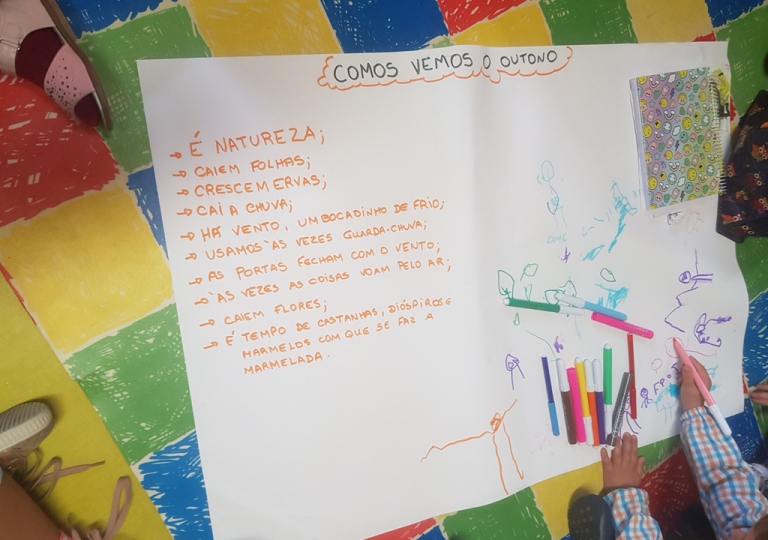 COMOS VEMOS O OUTONO
→ É NATUREZA;
→ CAIEM FOLHAS;
→ CRESCEM ERVAS;
→ CAI A CHUVA;
→ HÁ VENTO, UM BOCADINHO DE FRIO;
→ USAMOS ÀS VEZES GUARDA-CHUVA;
→ AS PORTAS FECHAM COM O VENTO;
→ ÀS VEZES AS COISAS VOAM PELO AR;
→ CAIEM FLORES;
→ É TEMPO DE CASTANHAS, DIÓSPIROS E
MARMELOS COM QUE SE FAZ A
MARMELADA.